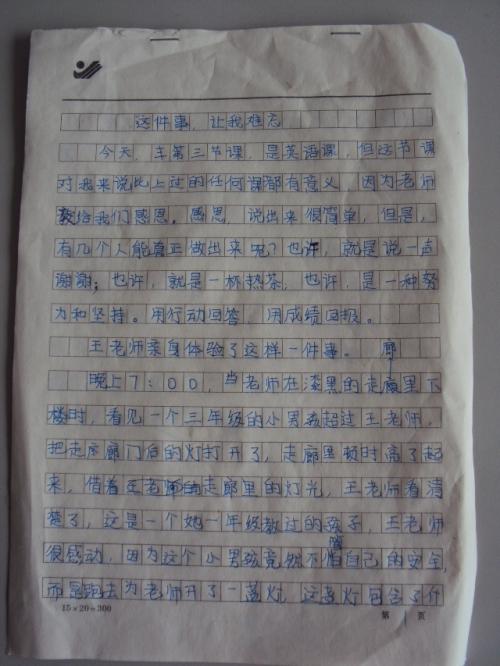 这件事,让我难忘
今天,车第三节课,是英语课,但这节课
对我来说比上过的任何课都有意义,因为老师
教给我们感恩。感恩,说出来很简单,但是,
有几个人能真正做出来呢?也许,就是说一声
谢谢;也许,就是一杯热茶,也许,是一种努
力和坚持。用行动回答,用成绩回报。
王老师亲身体验了这样一件事。廊
晚上7:00,当老师在漆黑的走廊里下
楼时,看见一个三年级的小男孩超过王老师,
把走廊门后的灯打开了,走廊里顿时亮了起
来,借着走廊里的灯光,王老师看清
楚了,这是一个她一年级教过的孩子,王老师
很感动,因为这个小男孩竟然不怕自己的安全,
而是跑去为老师开了一盏灯,这盏灯包含了什
15×20=300
第 页